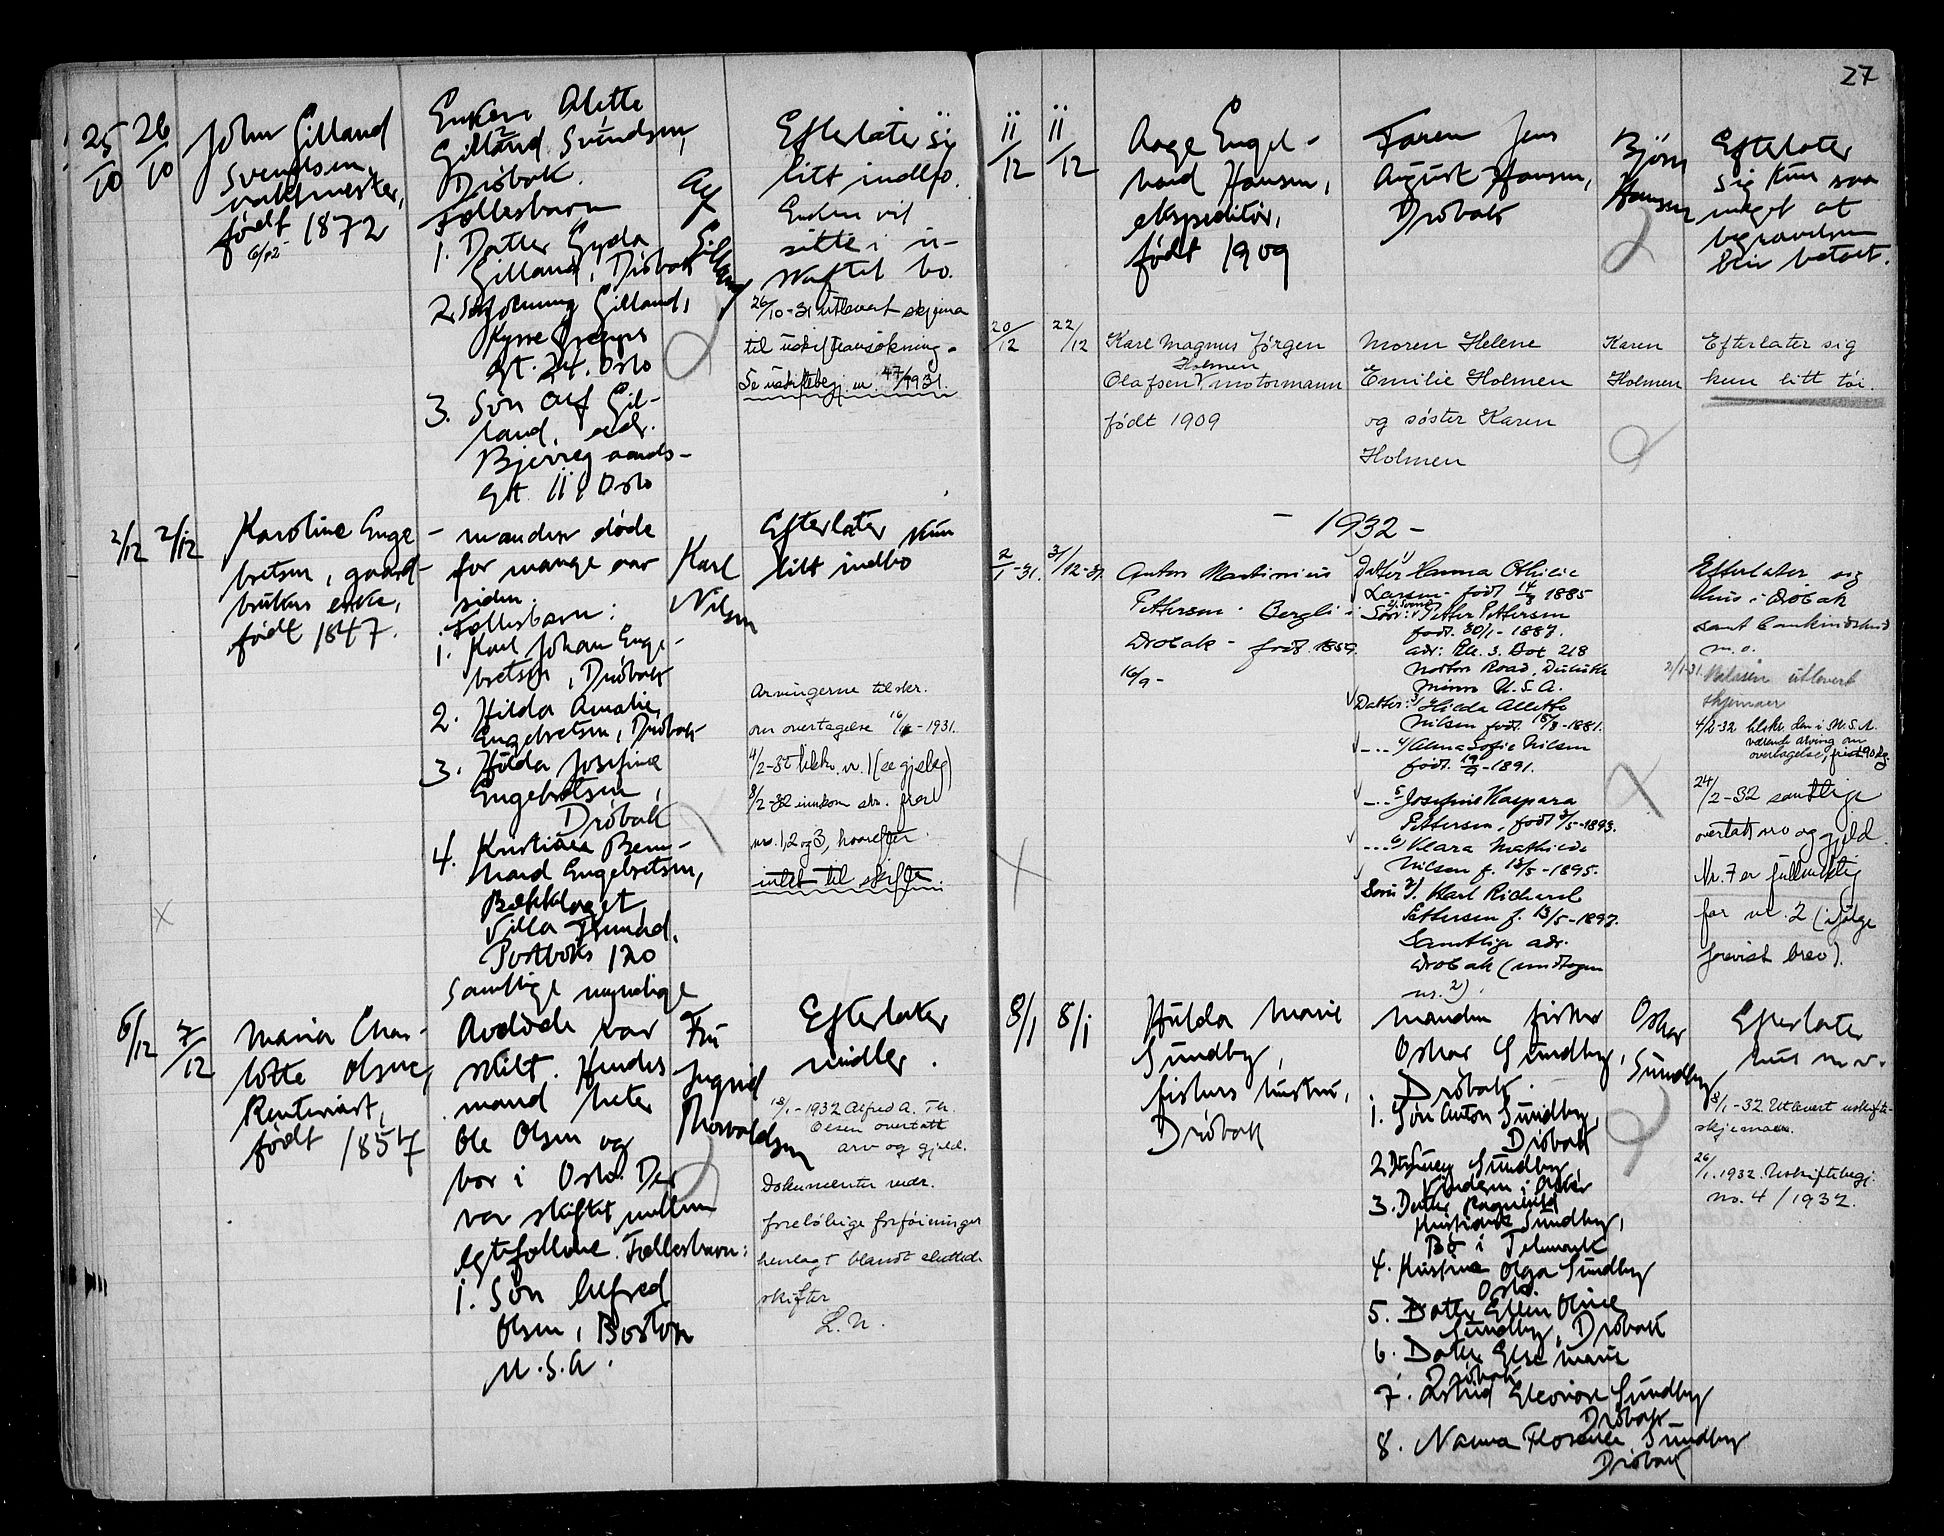 27
25/10
26/10
John Gilland
Svendsen
vaktmester,
født 1872
6/12
Enken Alette
Gilland Svendsen,
Drøbak.
Fællesbarn
1. Datter Gyda
Gilland, Drøbak
2. Søn Henning Gilland,
gt. 24. Oslo
3. Søn Alf Gil-
land, adr.
Bjerregaards-
gt. 11, Oslo
Alf
Gilland
Efterlater sig
litt indbo.
Enken vil
sitte i u-
skiftet bo.
26/10-31 utlevert skjema
til uskifteansøkning.
Se uskiftebegj. nr. 47/1931.
2/12
2/12
Karoline Enge-
bretsen, gaard-
brukers enke,
født 1847.
manden døde
for mange aar
siden.
Fællesbarn:
1. Karl Johan Enge-
bretsen, Drøbak
2. Hilda Amalie
Engebretsen, Drøbak
3. Hulda Josefine
Engebretsen,
Drøbak
4. Kristian Bern-
hard Engebretsen,
Bækklaget
Villa
Postboks 120
Samtlige myndige
Karl
Nilsen
Efterlater kun
litt indbo
Arvingerne tilskr.
om overtagelse 16/12-1931.
4/2-32 tilskr. nr. 1 (se gjeleg)
8/2-32 innkom skr. fra
nr. 1, 2 og 3, hvorefter
intet til skifte.
6/12
7/12
Maria Char-
lotte Olsen,
Rentenist,
født 1857
Avdøde var
skilt. Hendes
mand heter
Ole Olsen og
bor i Oslo. Der
var skiftet mellem
egtefællene. Fællesbarn:
1. Søn Alfred
Olsen, Boston
U.S.A.
Fru
Ingrid
Thorvaldsen
Efterlater
midler.
18/1-1932 Alfred A. Th.
Olsen overtatt
arv og gjeld.
Dokumenter vedr.
foreløbige forføininger
henlagt blandt sluttede
skifter
L.N.
11/12
11/12
Aage Engel-
hard Hansen,
ekspeditør,
født 1909
Faren Jens
August Hansen,
Drøbak
Bjørn
Hansen
Efterlater
sig kun saa
meget at
begravelsen
blir betalt.
20/12
22/12
Karl Magnus Jørgen
Holmen
Olafsen, motormann
født 1909
Moren Helene
Emilie Holmen
og søster Karen
Holmen
Karen
Holmen
Efterlater sig
kun litt tøi.
- 1932 -
2/1-31.
31/12-31.
Anton Martinius
Pettersen. Bergli i
Drøbak - født. 1859.
16/9-
Datter 1/ Hanna Othilie
Larsen - født 14/3 1885
Søn: 2/ Petter Pettersen
født. 30/1-1887.
adr: Rte. 3. Box 218
Norton Road, Duluth
Minn. U.S.A.
Datter: 3/ Hilda Alette
Nilsen født. 18/8-1881.
-..- 4/ Alma Sofie Nilsen
født. 19/9-1891.
-..- 5 Josefine Kaspara
Pettersen, født 3/5-1893.
-..- 6/ Klara Mathilde
Nilsen f. 13/5-1895.
Søn 7/. Karl Richard
Pettersen f. 13/5-1897.
Samtlige adr.
Drøbak (undtagen
nr. 2).
Efterlater sig
hus i Drøbak
samt bankindskud
m.v.
2/1-31. utlevert
skjemaer
4/2-32 tilskr. den i U.S.A.
værende arving om
overtagelse, frist 90 dg.
24/2-32 samtlige
overtatt arv og gjeld.
Nr. 7 er fuldmektig
for nr. 2 (ifølge
forevist brev).
8/1
8/1
Hulda Marie
Sundby,
fiskers hustru,
Drøbak
manden fisker
Oskar Sundby,
Drøbak.
1. Søn Anton Sundby,
Drøbak
2. Sundby
i Asker
3. Datter Ragnhild
Sundby,
Bø i Telemark
4. Kristine Olga Sundby
Oslo.
5. Datter Ellen Oline
Sundby, Drøbak
6. Datter Else Marie
Drøbak
7. Astrid Eleonore Sundby
Drøbak
8. Nanna Florence Sundby
Drøbak
Oskar
Sundby
Efterlater
hus m.v.
8/1-32. Utlevert uskifte-
skjemaer.
26/1.1932. Uskiftebegj.
no. 4/1932.